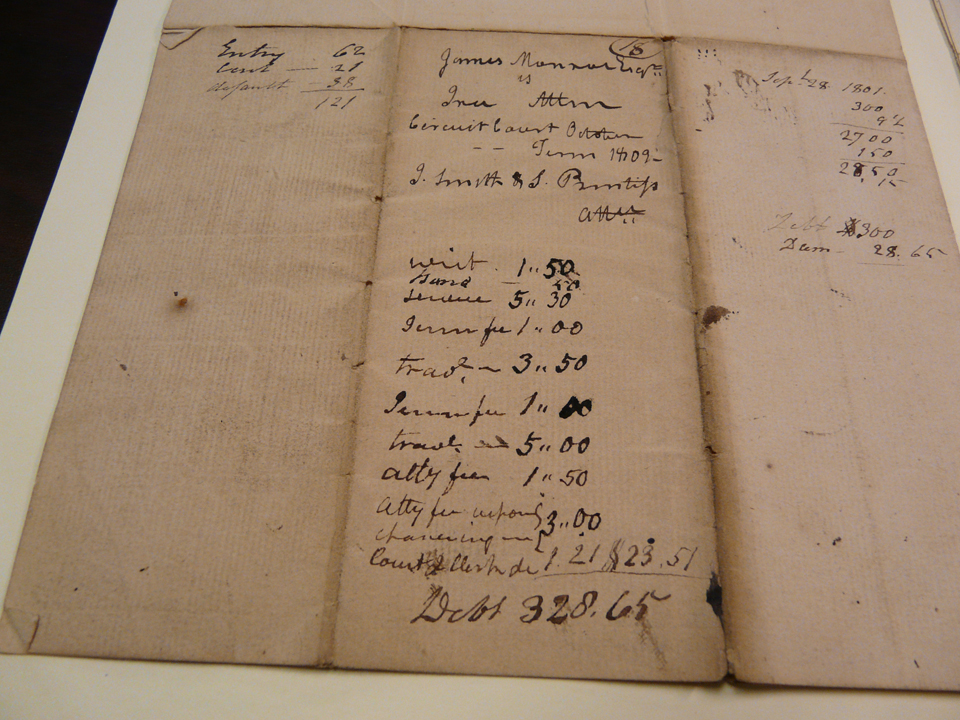 Entry 62
Cont 21
default 38
121
18
James Monroe Esqr
vs
Ira Allen
Circuit Court October
- - Term 1809-
J. Smith & S. Prentiss
Attys
writ . 1 " 50
50
service 5 " 30
Term fee 1 " 00
travl. - 3 " 50
Term fee 1 " 00
travl. 5 " 00
atty fee 1 " 50
Atty fee
3 " 00
chancering
Court & Clerk do 1.21 $23.51
Debt 328.65
Sept 28 1801.
300
2700
150
2850
.15
Debt $300
Dam - 28.65